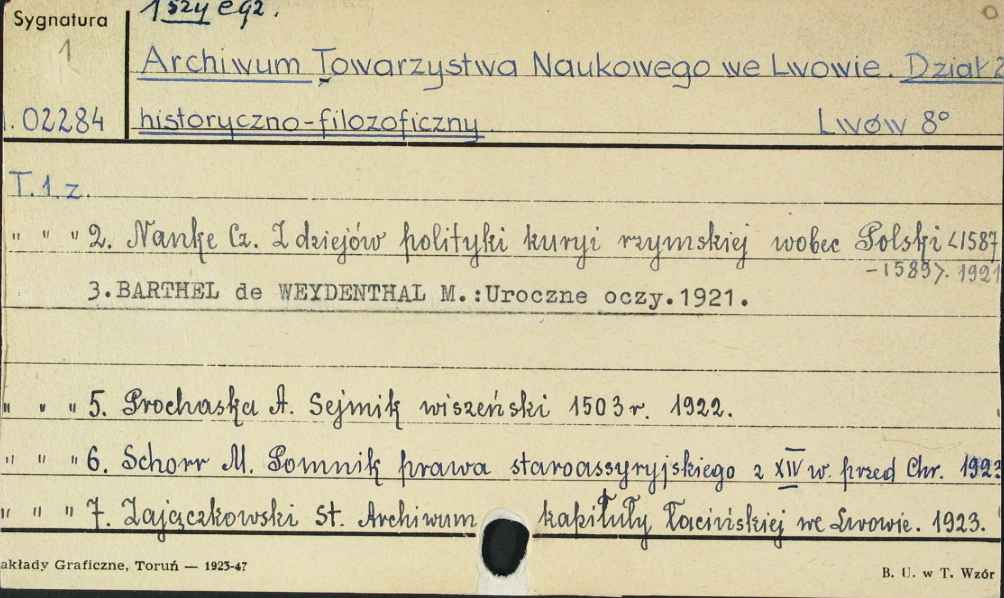 Sygnatura
1szy egz.
1
Archiwum Towarzystwa Naukowego we Lwowie. Dział 2
02284
historyczno-filozoficzny
Lwów 8°
T. 1. z.
" " " 2. Nanke Cz. Z dziejów polityki kuryi rzymskiej wobec Polski <1587
-1589>. 1921
3.BARTHEL de WEYDENTHAL M.:Uroczne oczy.1921.
" " " 5. Prochaska A. Sejmik wiszeński 1503 r. 1922.
" " " 6. Schorr M. Pomnik prawa staroassyryjskiego z XIV w. przed Chr. 1923
" " " 7. Zajączkowski St. Archiwum kapituły łacińskiej we Lwowie. 1923.
akłady Graficzne, Toruń — 1923-47
B. U. w T. Wzór